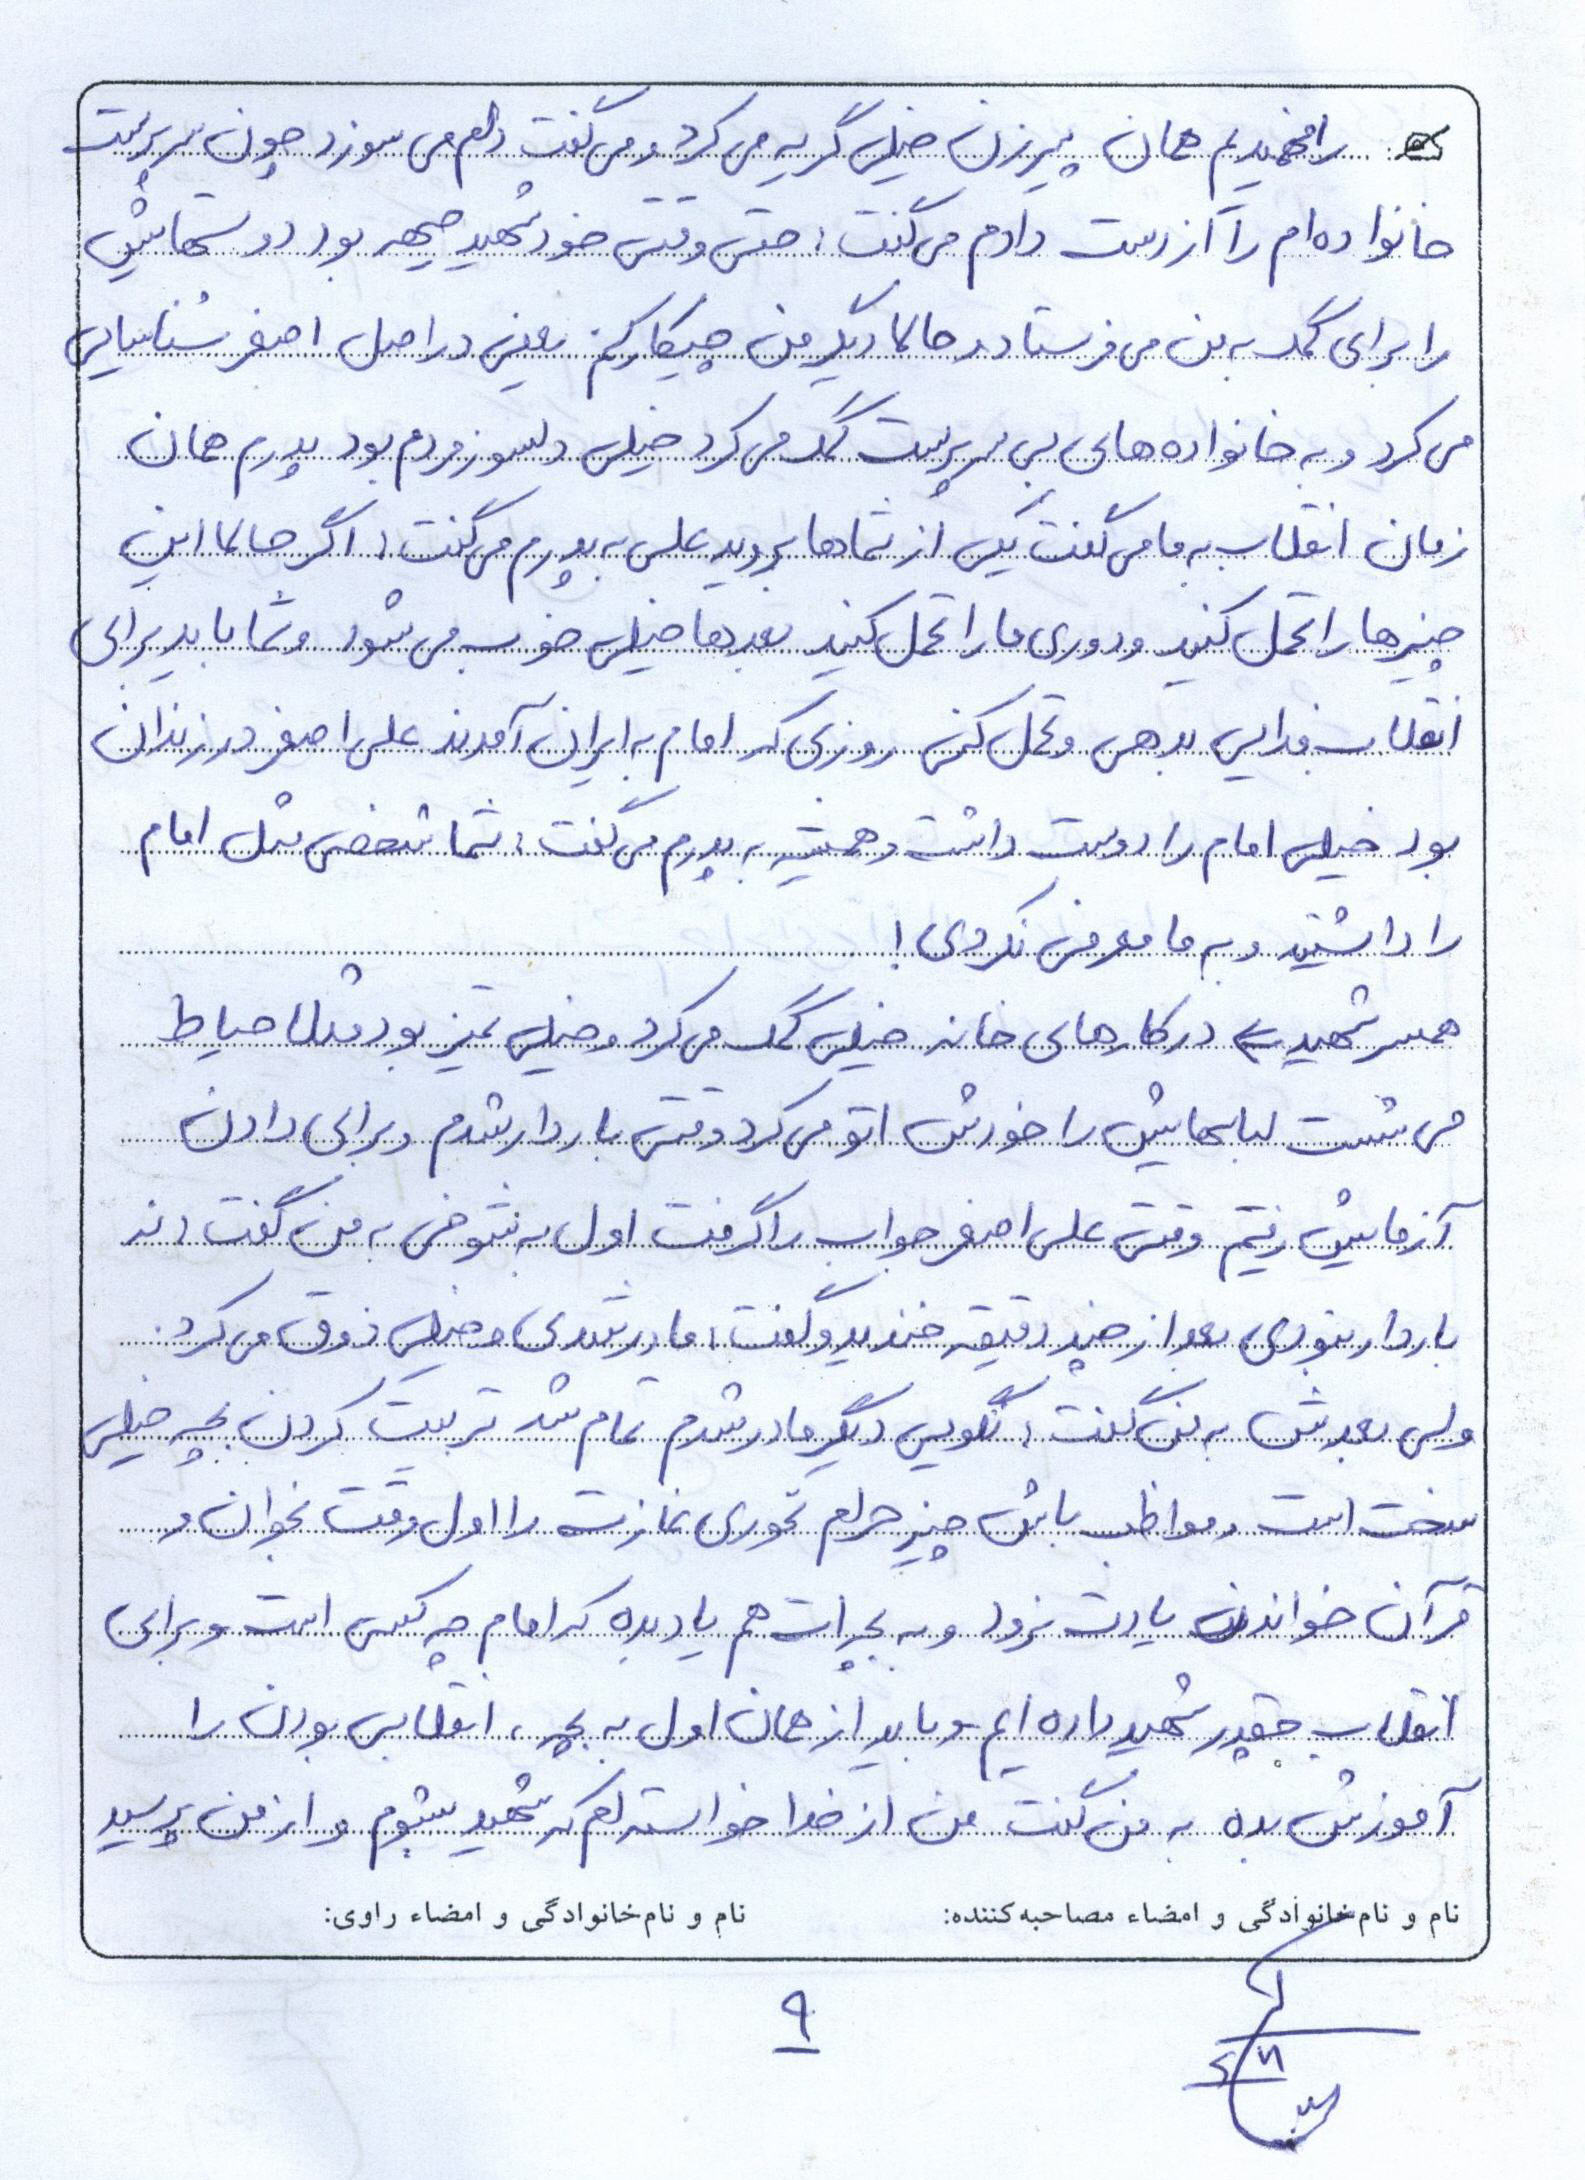 را فهمیدیم همان پیرزن خیلی گریه می کرد و می گفت دلم می سوزد چون سرپرست
خانواده ام را از دست دادم می گفت: حتی وقتی خود شهید جبهه بود دوستهایش
را برای کمک به من می فرستاد حالا دیگر من چیکار کنم یعنی در اصل اصغر شناسایی
می کرد و به خانواده های بی سرپرست کمک می کرد خیلی دلسوز مردم بود پدرم همان
زمان انقلاب به ما می گفت یکی از شماها بروید علی به پدرم می گفت: اگر حالا این
چیزها را تحمل کنید و دوری ما را تحمل کنید بعدها خیلی خوب می شود و شما باید برای
انقلاب فدایی بدهی و تحمل کنی روزی که امام به ایران آمدند علی اصغر در زندان
بود خیلی امام را دوست داشت و همیشه به پدرم می گفت: شما شخصی مثل امام
را داشتید و به ما معرفی نکردی!
همسر شهید در کارهای خانه خیلی کمک می کرد و خیلی تمیز بود مثلا حیاط
می شست لباسهایش را خودش اتو می کرد وقتی باردار شدم و برای دادن
آزمایش رفتیم وقتی علی اصغر جواب را گرفت اول به شوخی به من گفت: نه
باردار نبودی بعد از چند دقیقه خندید و گفت: مادر شدی و خیلی ذوق می کرد.
ولی بعدش به من گفت: نگویی دیگر مادر شدم تمام شد تربیت کردن بچه خیلی
سخت است و مواظب باش چیز حرام نخوری نمازت را اول وقت بخوان و
قرآن خواندن یادت نرود و به بچه ات هم یاد بده که امام چه کسی است و برای
انقلاب چقدر شهید داده ایم و باید از همان اول به بچه، انقلابی بودن را
آموزش بده به من گفت من از خدا خواسته ام که شهید بشوم و از من پرسید
نام و نام خانوادگی و امضاء مصاحبه کننده:
نام و نام خانوادگی و امضاء راوی:
۹